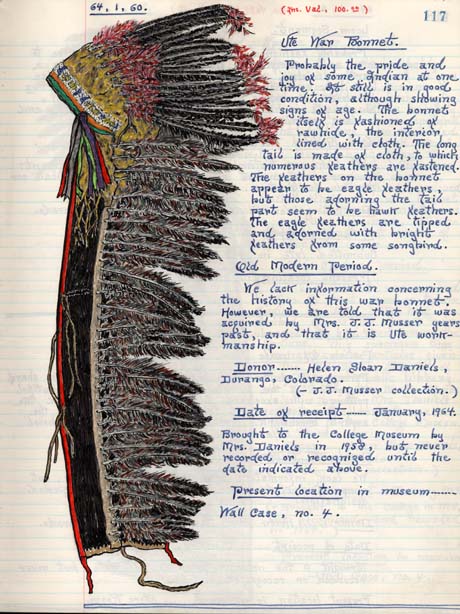 64, 1, 60.
(Ins. Val., 100.00)
117
Ute War Bonnet.
Probably the pride and
joy of some Indian at one
time. It still is in good
condition, although showing
signs of age. The bonnet
itself is fashioned of
rawhide, the interior
lined with cloth. The long
tail is made of cloth, to which
numerous feathers are fastened.
The feathers on the bonnet
appear to be eagle feathers,
but those adorning the tail
part seem to be hawk feathers.
The eagle feathers are tipped
and adorned with bright
feathers from some songbird.
Old Modern Period.
We lack information concerning
the history of this war bonnet.
However, we are told that it was
acquired by Mrs. J. J. Musser years
past, and that it is Ute work-
manship.
Donor------ Helen Sloan Daniels,
Durango, Colorado.
(- J. J. Musser collection.)
Date of receipt----- January, 1964.
Brought to the College Museum by
Mrs. Daniels in 1958, but never
recorded or recognized until the
date indicated above.
Present location in museum------
Wall Case, no. 4.